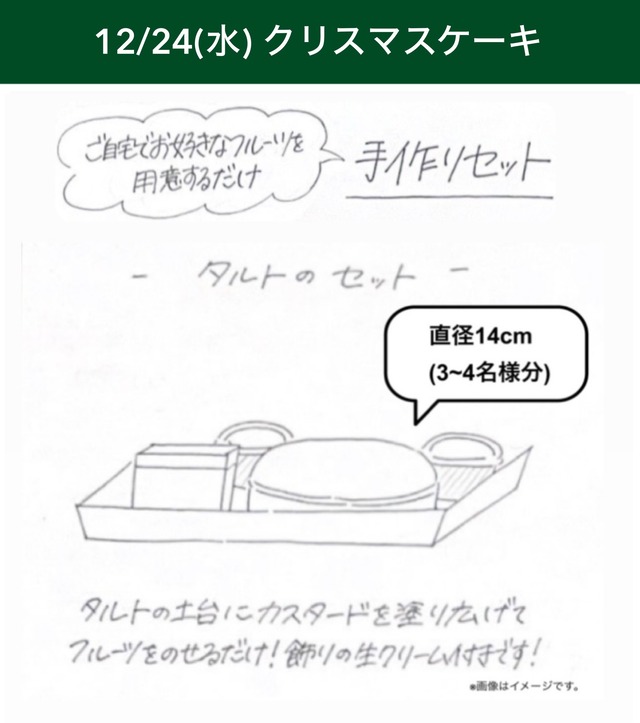 12/24(水) クリスマスケーキ
ご自宅でお好きなフルーツを
用意するだけ
手作りセット
- タルトのセット -
直径14cm
(3~4名様分)
タルトの土台にカスタードを塗り広げて
フルーツをのせるだけ!飾りの生クリーム付きです!
※画像はイメージです。